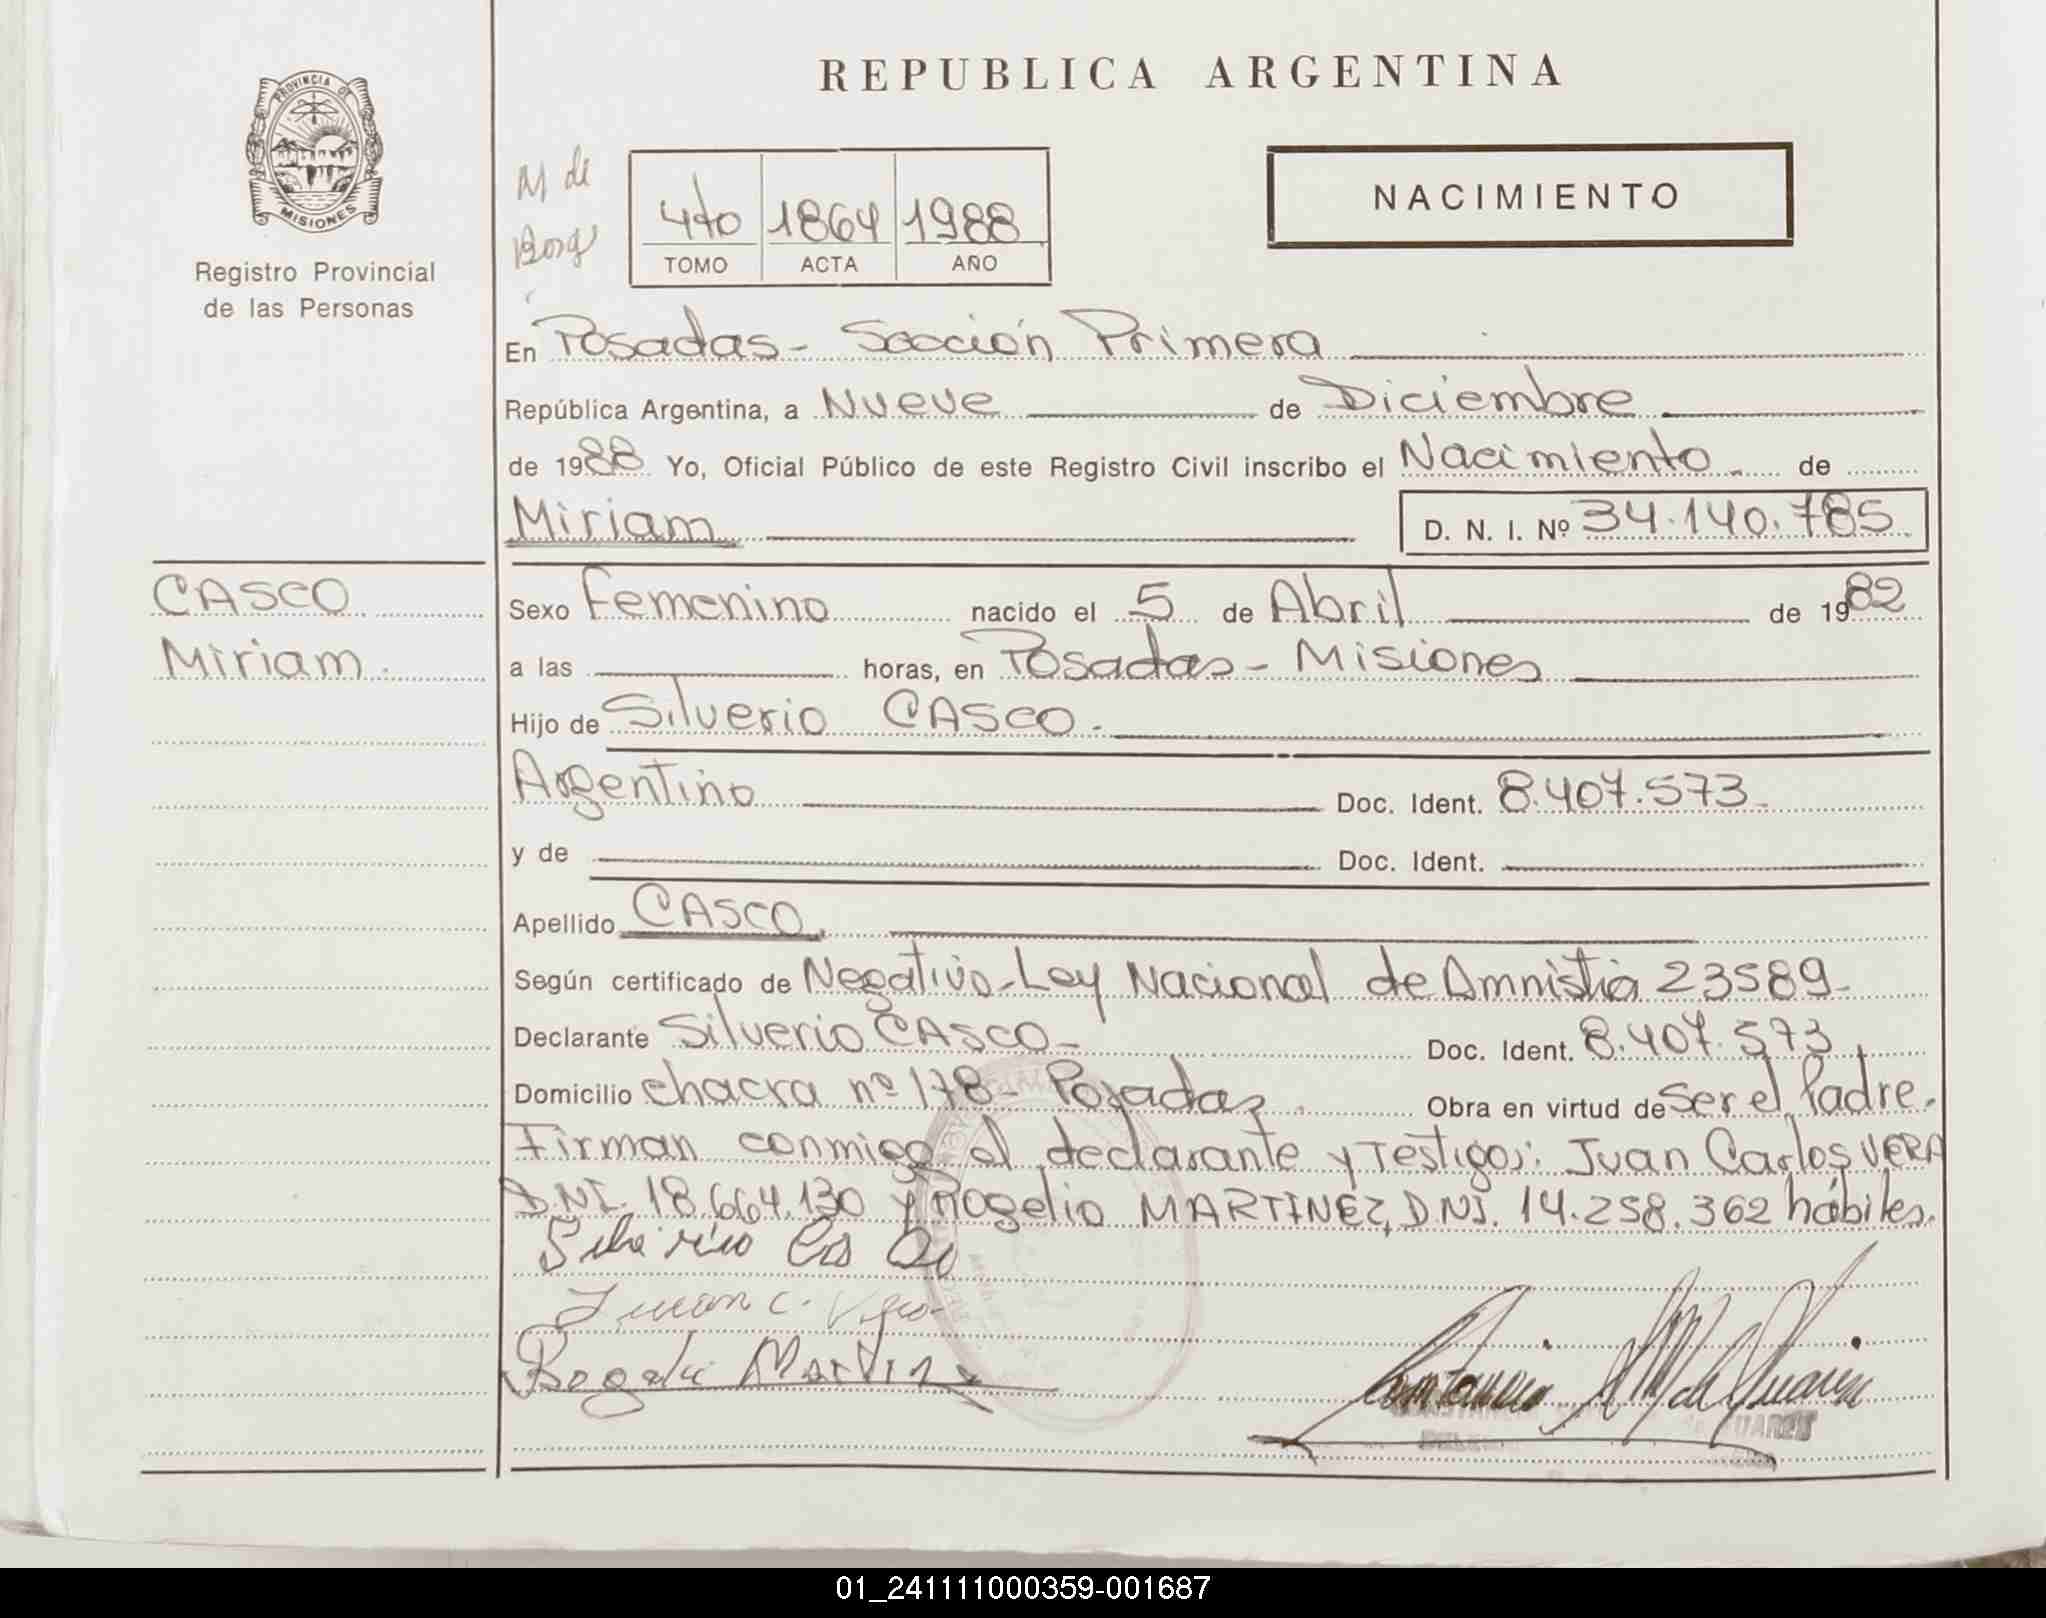 REPUBLICA ARGENTINA
PROVINCIA DE
MISIONES
Registro Provincial
de las Personas
M de
470 1864 1988
TOMO ACTA AÑO
NACIMIENTO
En Posadas - Sección Primera
República Argentina, a Nueve de Diciembre
de 1988 Yo, Oficial Público de este Registro Civil inscribo el Nacimiento - de
Miriam D. N. I. Nº 34.140.785
CASCO
Miriam.
Sexo Femenino nacido el 5 de Abril de 1982
a las horas, en Posadas - Misiones
Hijo de Silverio CASCO.
Argentino Doc. Ident. 8.407.573-
y de Doc. Ident.
Apellido CASCO.
Según certificado de Negativo - Ley Nacional de Amnistia 23589-
Declarante Silverio CASCO- Doc. Ident. 8.407.573
Domicilio chacra nº 178- Posadas. Obra en virtud de Ser el Padre.
Firman conmigo el declarante y Testigos: Juan Carlos VERA
D.N.I. 18.664.130 y Rogelio MARTINEZ, D.N.I. 14.258.362 hábiles.
Juan C. Vera
01_241111000359-001687